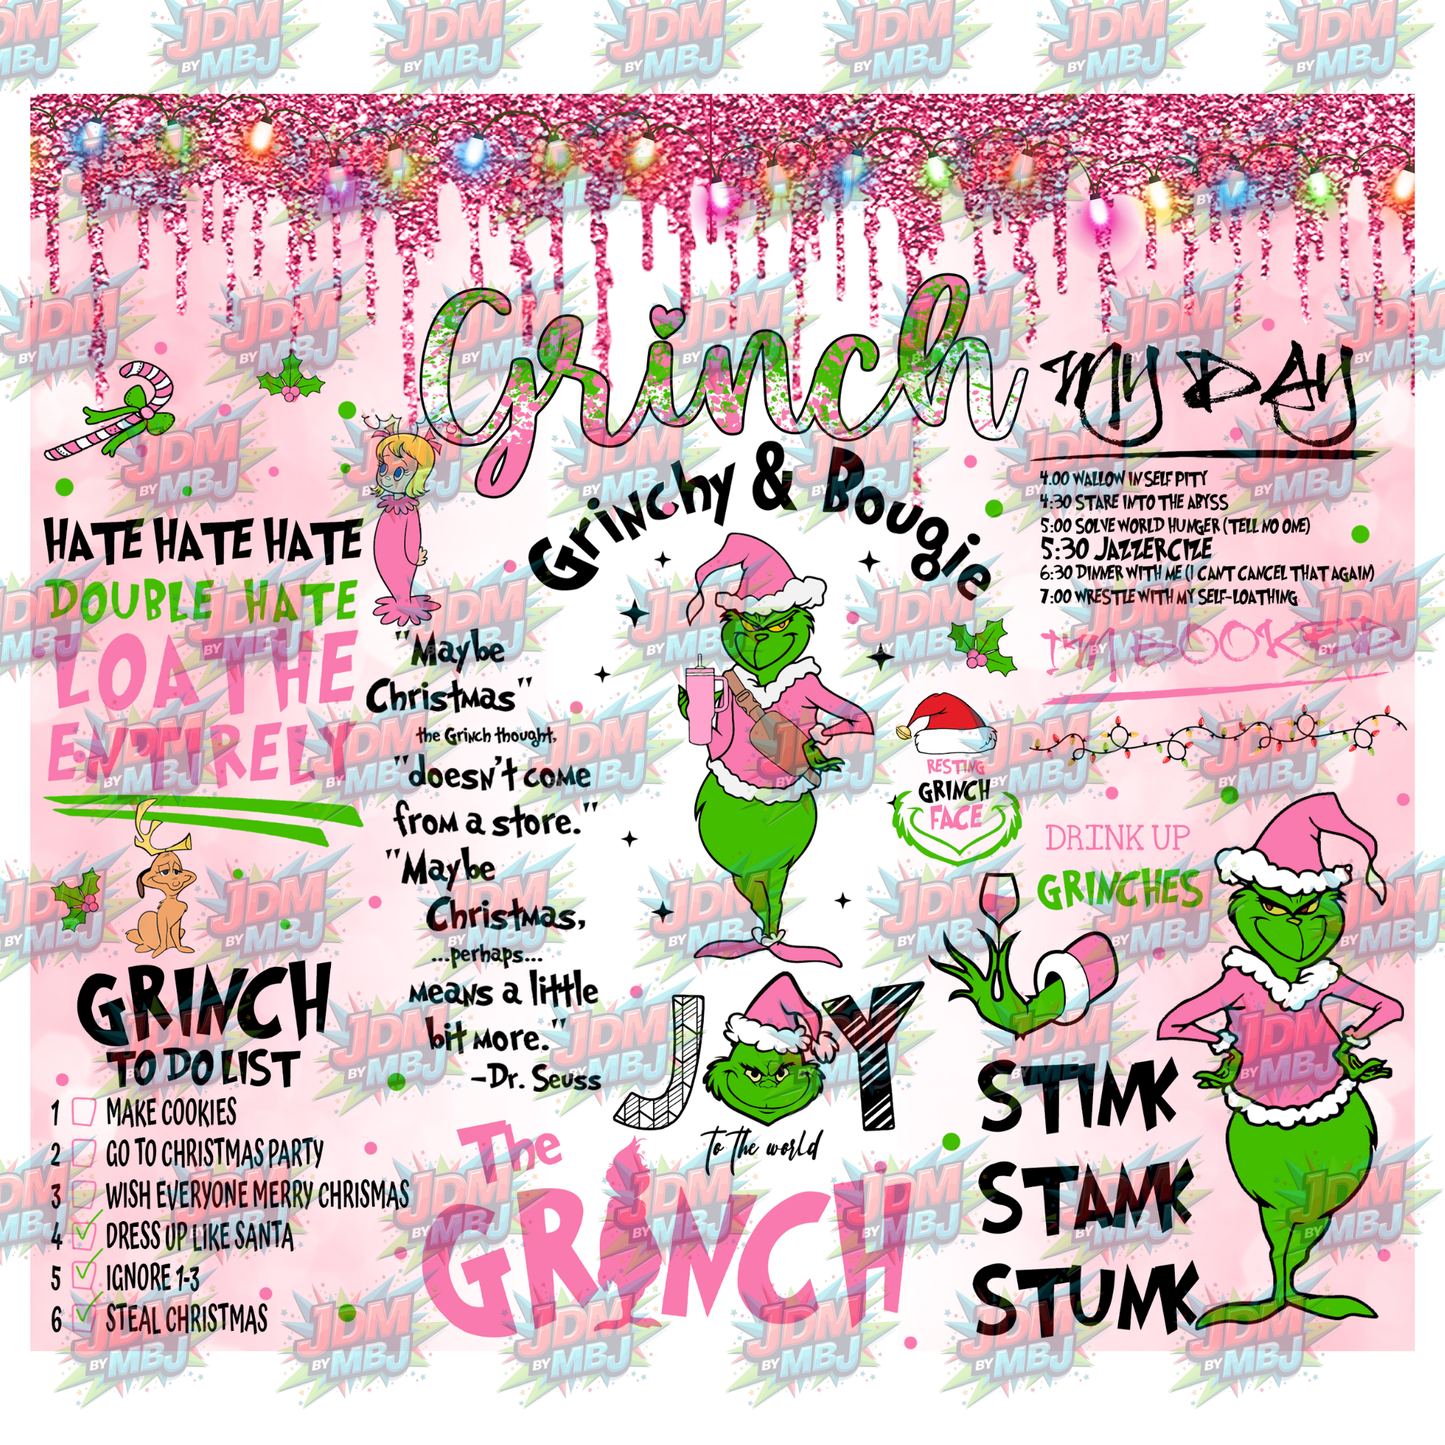 JDM
BY MBJ
Grinch
Grinchy & Bougie
HATE HATE HATE
DOUBLE HATE
LOATHE
ENTIRELY
GRINCH
TO DO LIST
1 MAKE COOKIES
2 GO TO CHRISTMAS PARTY
3 WISH EVERYONE MERRY CHRISMAS
4 DRESS UP LIKE SANTA
5 IGNORE 1-3
6 STEAL CHRISTMAS
"Maybe
Christmas"
the Grinch thought,
"doesn't come
from a store."
"Maybe
Christmas,
...perhaps...
means a little
bit more."
-Dr. Seuss
JOY
to the world
The
GRINCH
MY DAY
4:00 WALLOW IN SELF PITY
4:30 STARE INTO THE ABYSS
5:00 SOLVE WORLD HUNGER (TELL NO ONE)
5:30 JAZZERCIZE
6:30 DINNER WITH ME (I CANT CANCEL THAT AGAIN)
7:00 WRESTLE WITH MY SELF-LOATHING
I'M BOOKED
RESTING
GRINCH
FACE
DRINK UP
GRINCHES
STINK
STANK
STUNK